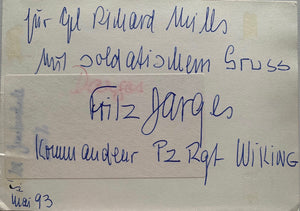 für Cpl Richard Mills
Mit soldatischem Gruss
Fritz Darges
Kommandeur Pz Rgt WIKING
Mai 93